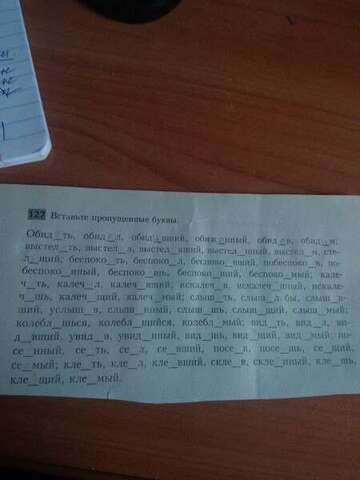 127 Вставьте пропущенные буквы.
Обид_ть, обид_л, обид_вший, обиж_нный, обид_в, обид_м;
выстел_ть, выстел_л, выстел_вший, выстел_нный, выстел_м, сте-
л_щий; беспоко_ть, беспоко_л, беспоко_вший, побеспоко_в, по-
беспоко_нный, беспоко_шь, беспоко_щий, беспоко_мый; кале-
ч_ть, калеч_л, калеч_вший, искалеч_в, искалеч_нный, искале-
ч_шь, калеч_щий, калеч_мый; слыш_ть, слыш_л бы, слыш_в-
ший, услыш_в, слыш_нный, слыш_шь, слыш_щий, слыш_мый;
колебл_шься, колебл_щийся, колебл_мый; вид_ть, вид_л, ви-
д_вший, увид_в, увид_нный, вид_шь, вид_щий, вид_мый; по-
се_нный, се_ть, се_л, се_вший, посе_в, посе_шь, се_щий,
се_мый; кле_ть, кле_л, кле_вший, скле_в, скле_нный, кле_шь,
кле_щий, кле_мый.